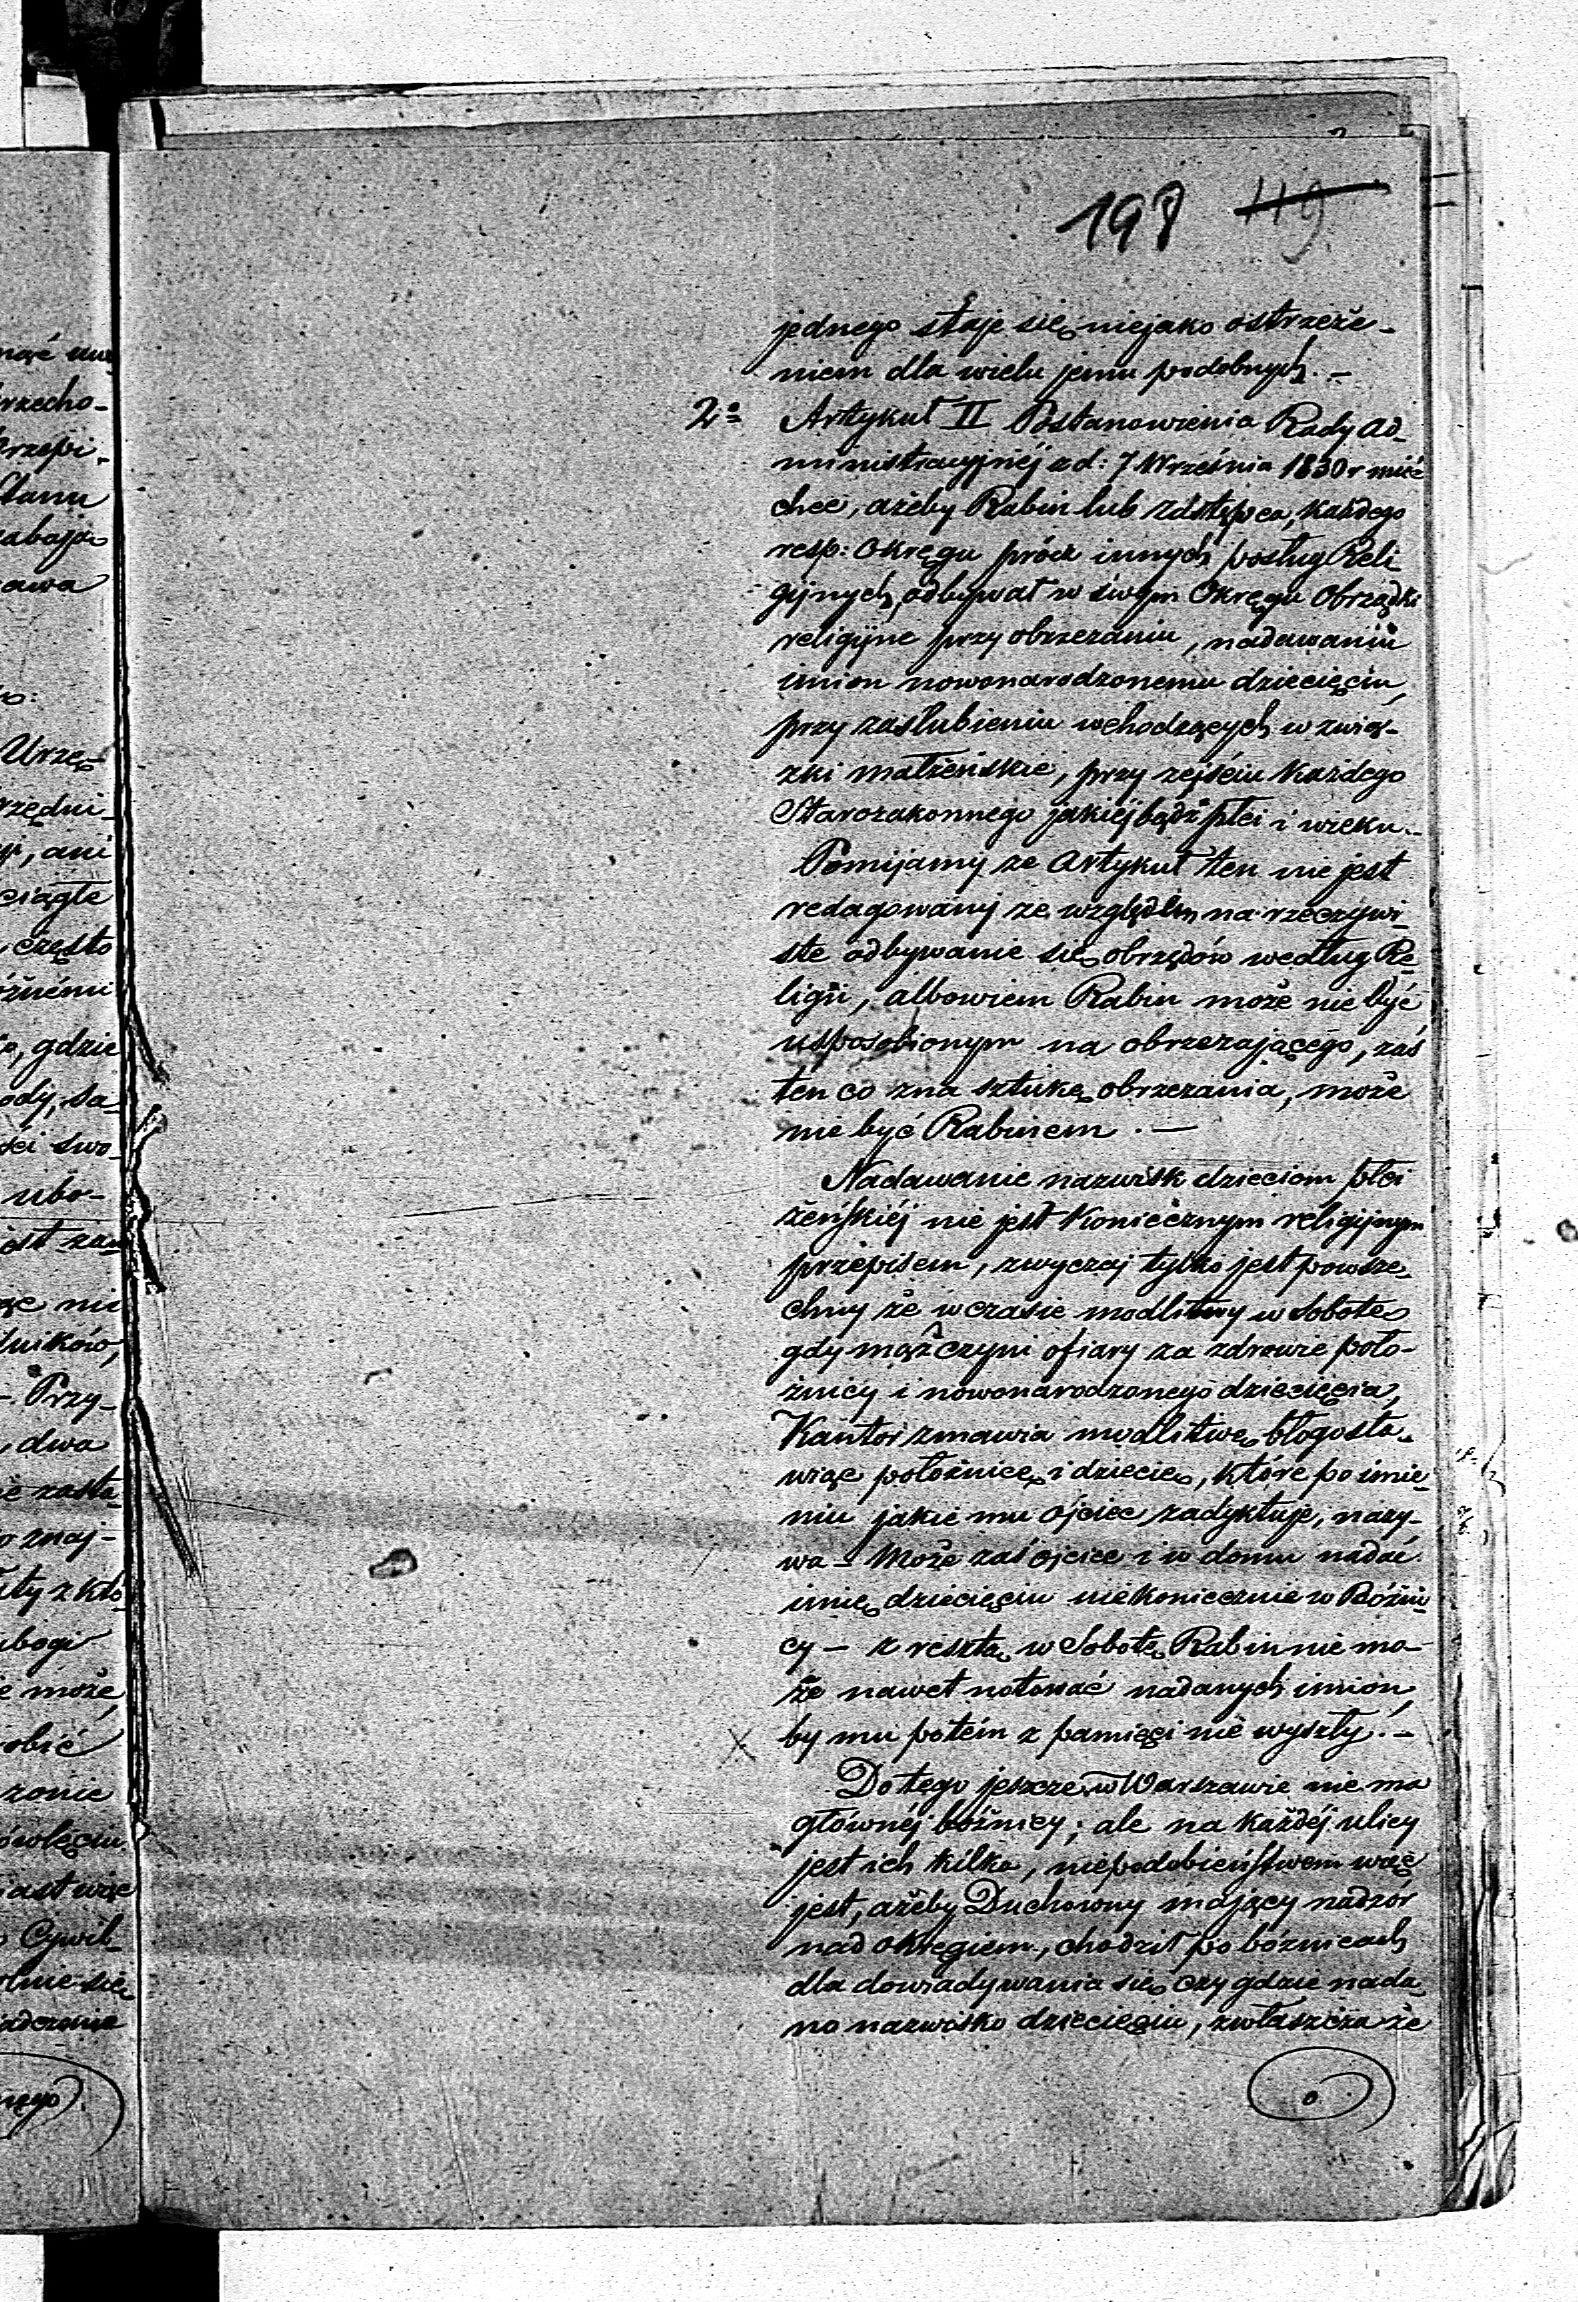 197 119
jednego staje się niejako ostrzeże-
niem dla wielu jemu podobnych.—
2o Artykuł II Postanowienia Rady Ad-
ministracyjnéj z d: 7 Września 1830 r mieć
chce, ażeby Rabin lub zastępca, każdego
resp: Okręgu prócz innych posług Reli
gijnych, odbywał w swym Okręgu Obrządki
religijne przy obrzezaniu, nadawaniu
imion nowonarodzonemu dziecięciu,
przy zaślubieniu wchodzących w zwią-
zki małżeńskie, przy zejściu każdego
Starozakonnego jakiéj bądź płci i wieku.—
Pomijamy ze Artykuł ten nie jest
redagowany ze względem na rzeczywi-
ste odbywanie się obrzędów według Re-
ligii, albowiem Rabin może nie być
usposobionym na obrzezającego, zaś
ten co zna sztukę obrzezania, może
nie być Rabinem.—
Nadawanie nazwisk dzieciom płci
żeńskiéj nie jest koniecznym religijnym
przepisem, zwyczaj tylko jest powsze-
chny że w czasie modlitwy w Sobotę
gdy mężczyni ofiary za zdrowie poło-
żnicy i nowonarodzonego dziecięcia,
Kantor zmawia modlitwę błogosła-
wiąc położnicę i dziecię, które po imie-
niu jakie mu ojciec zadyktuje, nazy-
wa — Może zaś ojciec i w domu nadać
imię dziecięciu niekoniecznie w Bóżni-
cy — z resztą w Sobotę Rabin nie mo-
że nawet notować nadanych imion,
by mu potém z pamięci nie wyszły.—
Do tego jeszcze w Warszawie nie ma
głównéj bóźnicy; ale na każdéj ulicy
jest ich kilka, niepodobieństwem więc
jest, ażeby Duchowny mający nadzór
nad okręgiem, chodził po bóznicach
dla dowiadywania się czy gdzie nada-
no nazwisko dziecięciu, zwłaszcza że